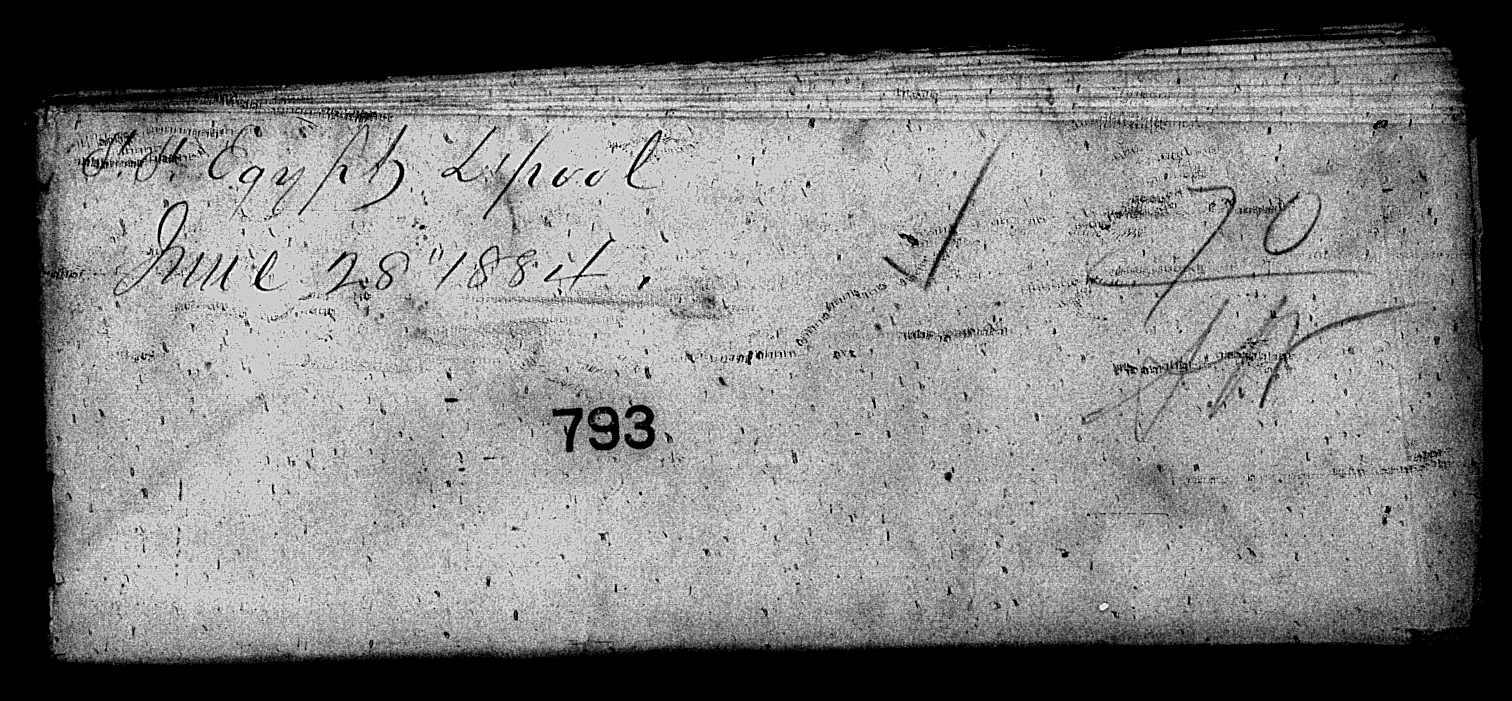 S.S. Egypt L'pool
June 28" 1884.
70
793